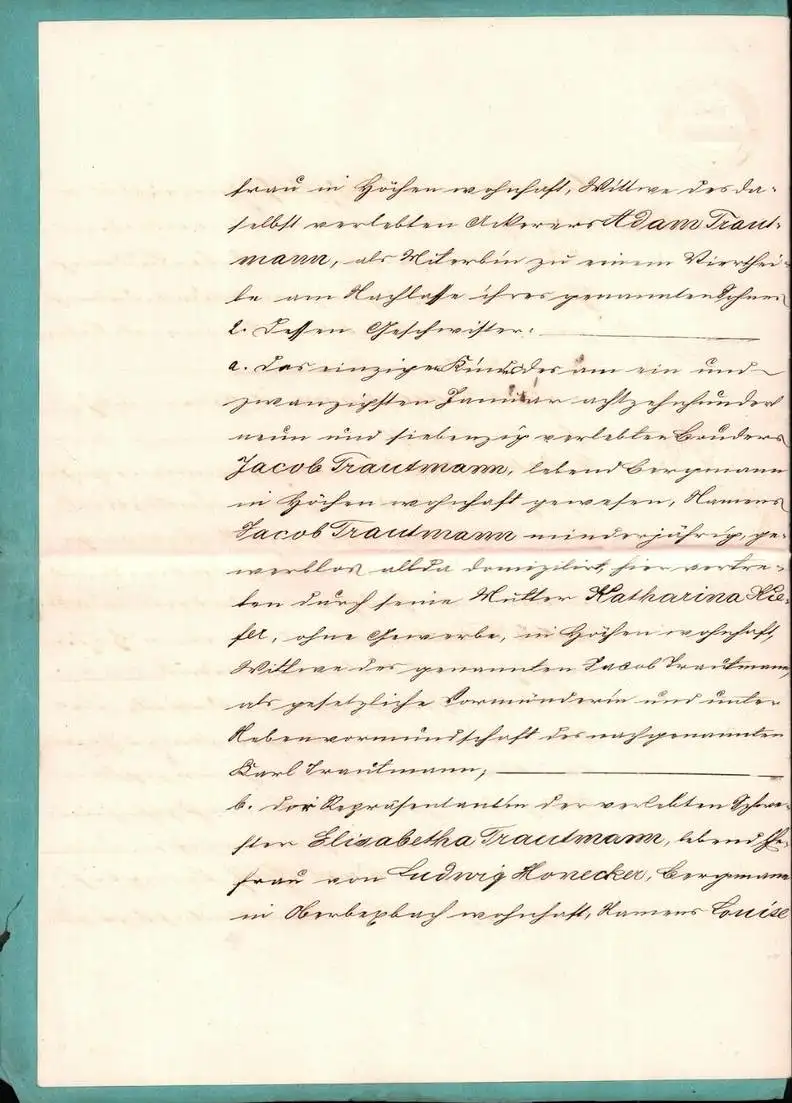 frau in Höchen wohnhaft, Wittwe des da-
selbst verlebten Ackerers Adam Traut-
mann, als Miterbin zu einem Vierthei-
le am Nachlasse ihres genannten Sohnes
2. Dessen Geschwister:
a. das einzige Kind des am ein und
zwanzigsten Januar achtzehnhundert
neun und siebenzig verlebten Bruders
Jacob Trautmann, lebend Bergmann
in Höchen wohnhaft gewesen, Namens
Jacob Trautmann minderjährig, ge-
werblos allda domizilirt, hier vertre-
ten durch seine Mutter Katharina Kie-
fer, ohne Gewerbe, in Höchen wohnhaft,
Wittwe des genannten Jacob Trautmann,
als gesetzliche Vormünderin und unter
Nebenvormundschaft des nachgenannten
Karl Trautmann;
b. der Repräsentantin der verlebten Schwe-
ster Elisabetha Trautmann, lebend Ehe-
frau von Ludwig Honecker, Bergmann
in Oberbexbach wohnhaft, Namens Louise